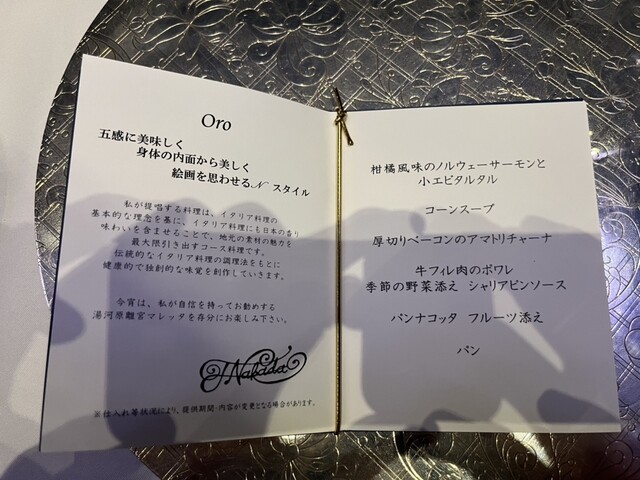 Oro
五感に美味しく
身体の内面から美しく
絵画を思わせるN スタイル
私が提唱する料理は、イタリア料理の
基本的な理念を基に、イタリア料理にも日本の香り
味わいを含ませることで、地元の素材の魅力を
最大限引き出すコース料理です。
伝統的なイタリア料理の調理法をもとに
健康的で独創的な味覚を創作していきます。
今宵は、私が自信を持ってお勧めする
湯河原離宮マレッタを存分にお楽しみ下さい。
T Nakada
※仕入れ等状況により、提供期間・内容が変更となる場合があります。
柑橘風味のノルウェーサーモンと
小エビタルタル
コーンスープ
厚切りベーコンのアマトリチャーナ
牛フィレ肉のポワレ
季節の野菜添え シャリアピンソース
パンナコッタ フルーツ添え
パン